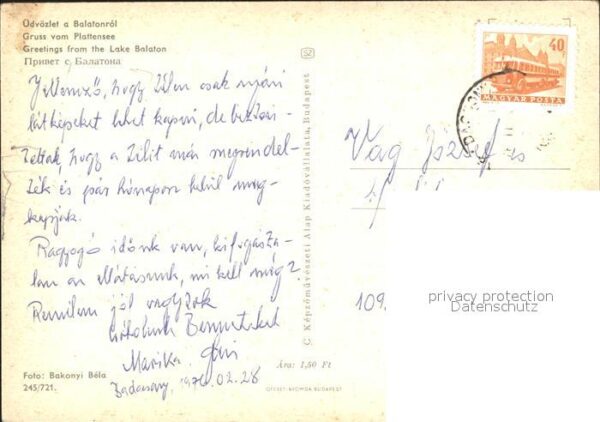 Üdvözlet a Balatonról
Gruss vom Plattensee
Greetings from the Lake Balaton
Привет с Балатона
Jellemző, hogy télen csak nyári
látképeket lehet kapni, de biztosí-
tottak, hogy a télit már megrendel-
ték és pár hónapon belül meg-
kapják.
Ragyogó időnk van, kifogásta-
lan az ellátásunk, mi kell még?
Remélem jól vagytok
csókolunk Bennetket
Marika
Badacsony, 1976.02.28
Foto: Bakonyi Béla
245/721.
C. Képzőművészeti Alap Kiadóvállalata, Budapest
Ára: 1,50 Ft
OFFSET-NYOMDA BUDAPEST
40
MAGYAR POSTA
Vag József
109.
privacy protection
Datenschutz